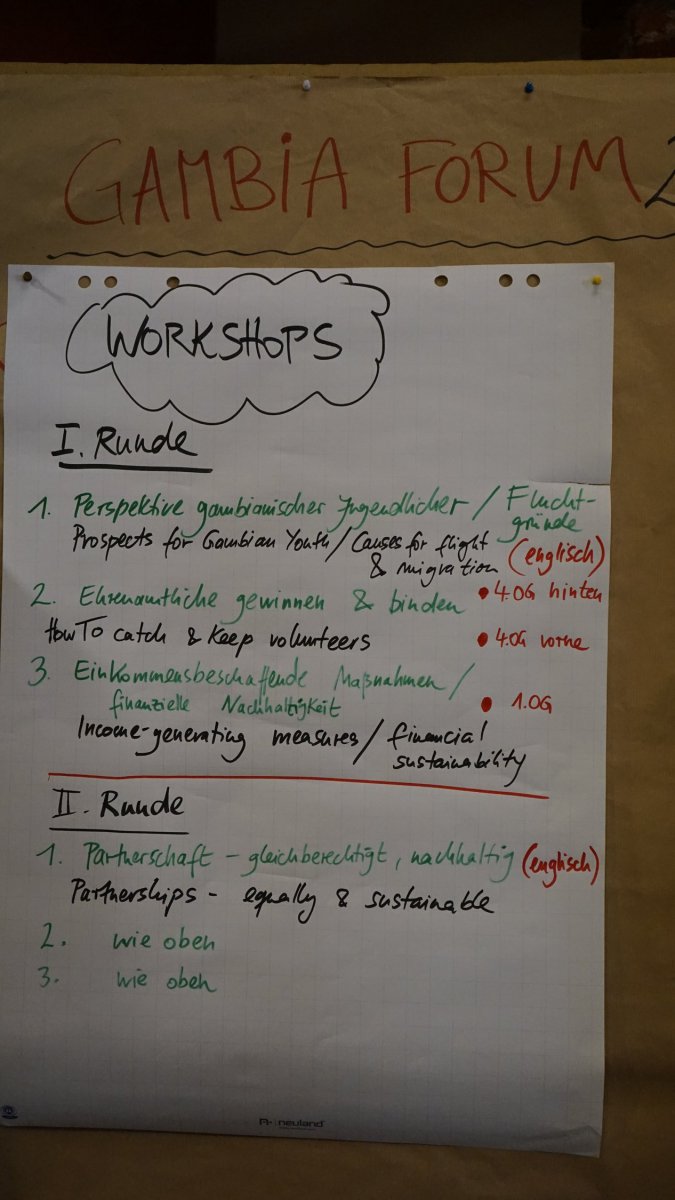 GAMBIA FORUM
WORKSHOPS
I. Runde
1. Perspektive gambianischer Jugendlicher / Flucht-
gründe
Prospects for Gambian Youth / Causes for flight
& migration (englisch)
• 4.OG hinten
2. Ehrenamtliche gewinnen & binden
How To catch & Keep volunteers • 4.OG vorne
3. Einkommensbeschaffende Maßnahmen /
finanzielle Nachhaltigkeit • 1.OG
Income-generating measures / financial
sustainability
II. Runde
1. Partnerschaft - gleichberechtigt, nachhaltig (englisch)
Partnerships - equally & sustainable
2. wie oben
3. wie oben
neuland